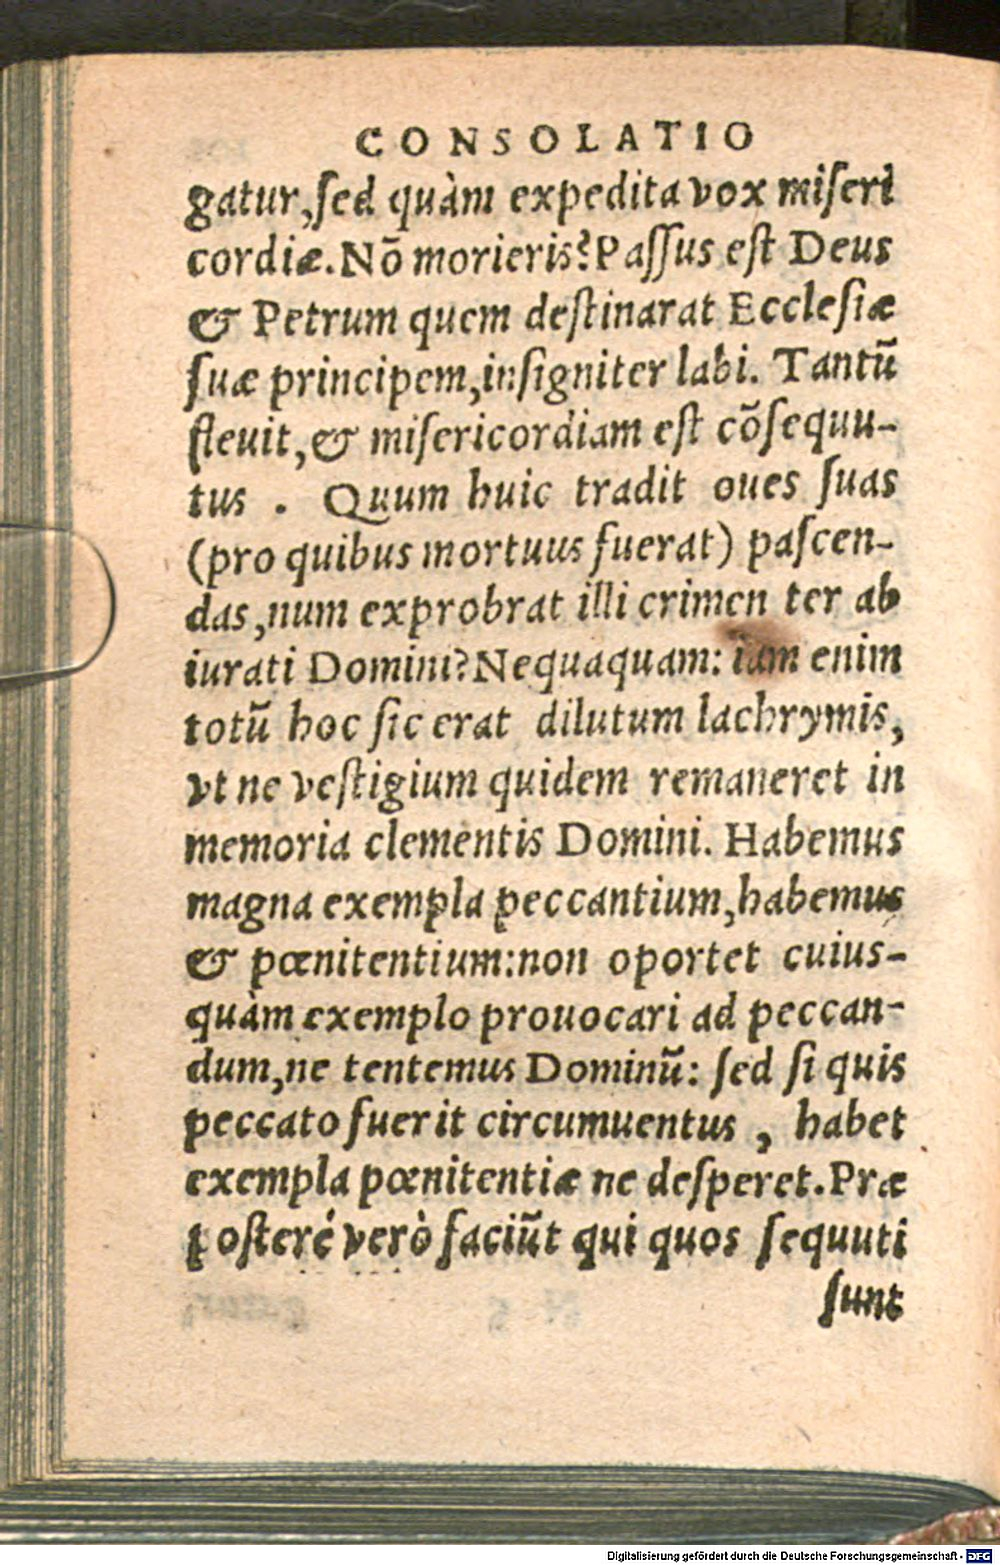 CONSOLATIO
gatur, ſed quàm expedita vox miſeri
cordiæ. Nõ morieris? Paſſus est Deus
& Petrum quem deſtinarat Eccleſiæ
ſuæ principem, inſigniter labi. Tantũ
fleuit, & miſericordiam eſt cõſequu-
tus . Quum huic tradit oues ſuas
(pro quibus mortuus fuerat) paſcen-
das, num exprobrat illi crimen ter ab
iurati Domini? Nequaquam: iam enim
totũ hoc ſic erat dilutum lachrymis,
vt ne veſtigium quidem remaneret in
memoria clementis Domini. Habemus
magna exempla peccantium, habemus
& pœnitentium: non oportet cuius-
quàm exemplo prouocari ad peccan-
dum, ne tentemus Dominũ: ſed ſi quis
peccato fuerit circumuentus , habet
exempla pœnitentiæ ne deſperet. Præ
poſteré verò faciũt qui quos ſequuti
ſunt
Digitalisierung gefördert durch die Deutsche Forschungsgemeinschaft - DFG